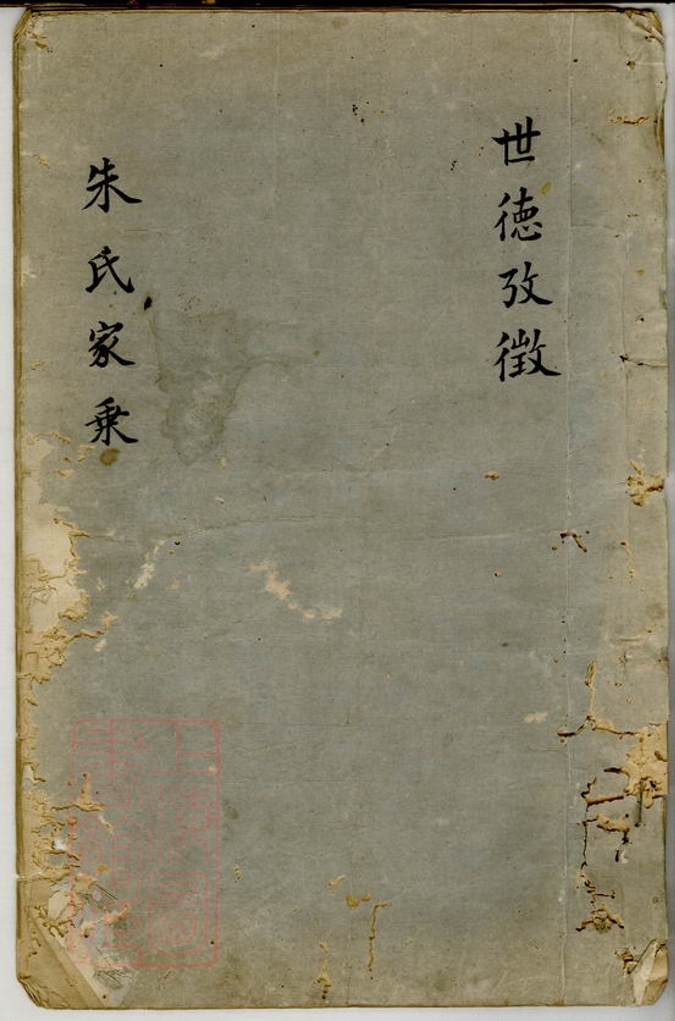 世德攷徵
朱氏家乗